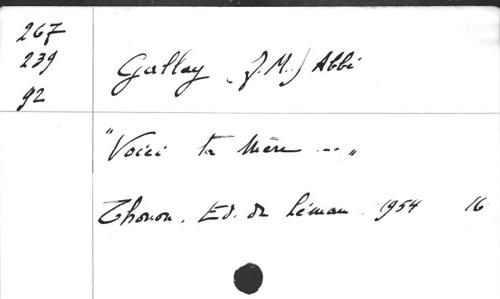 267
239
92
Gallay (J.M.) Abbé
"Voici ta Mère ..."
Thonon. Ed. du Léman. 1954 16